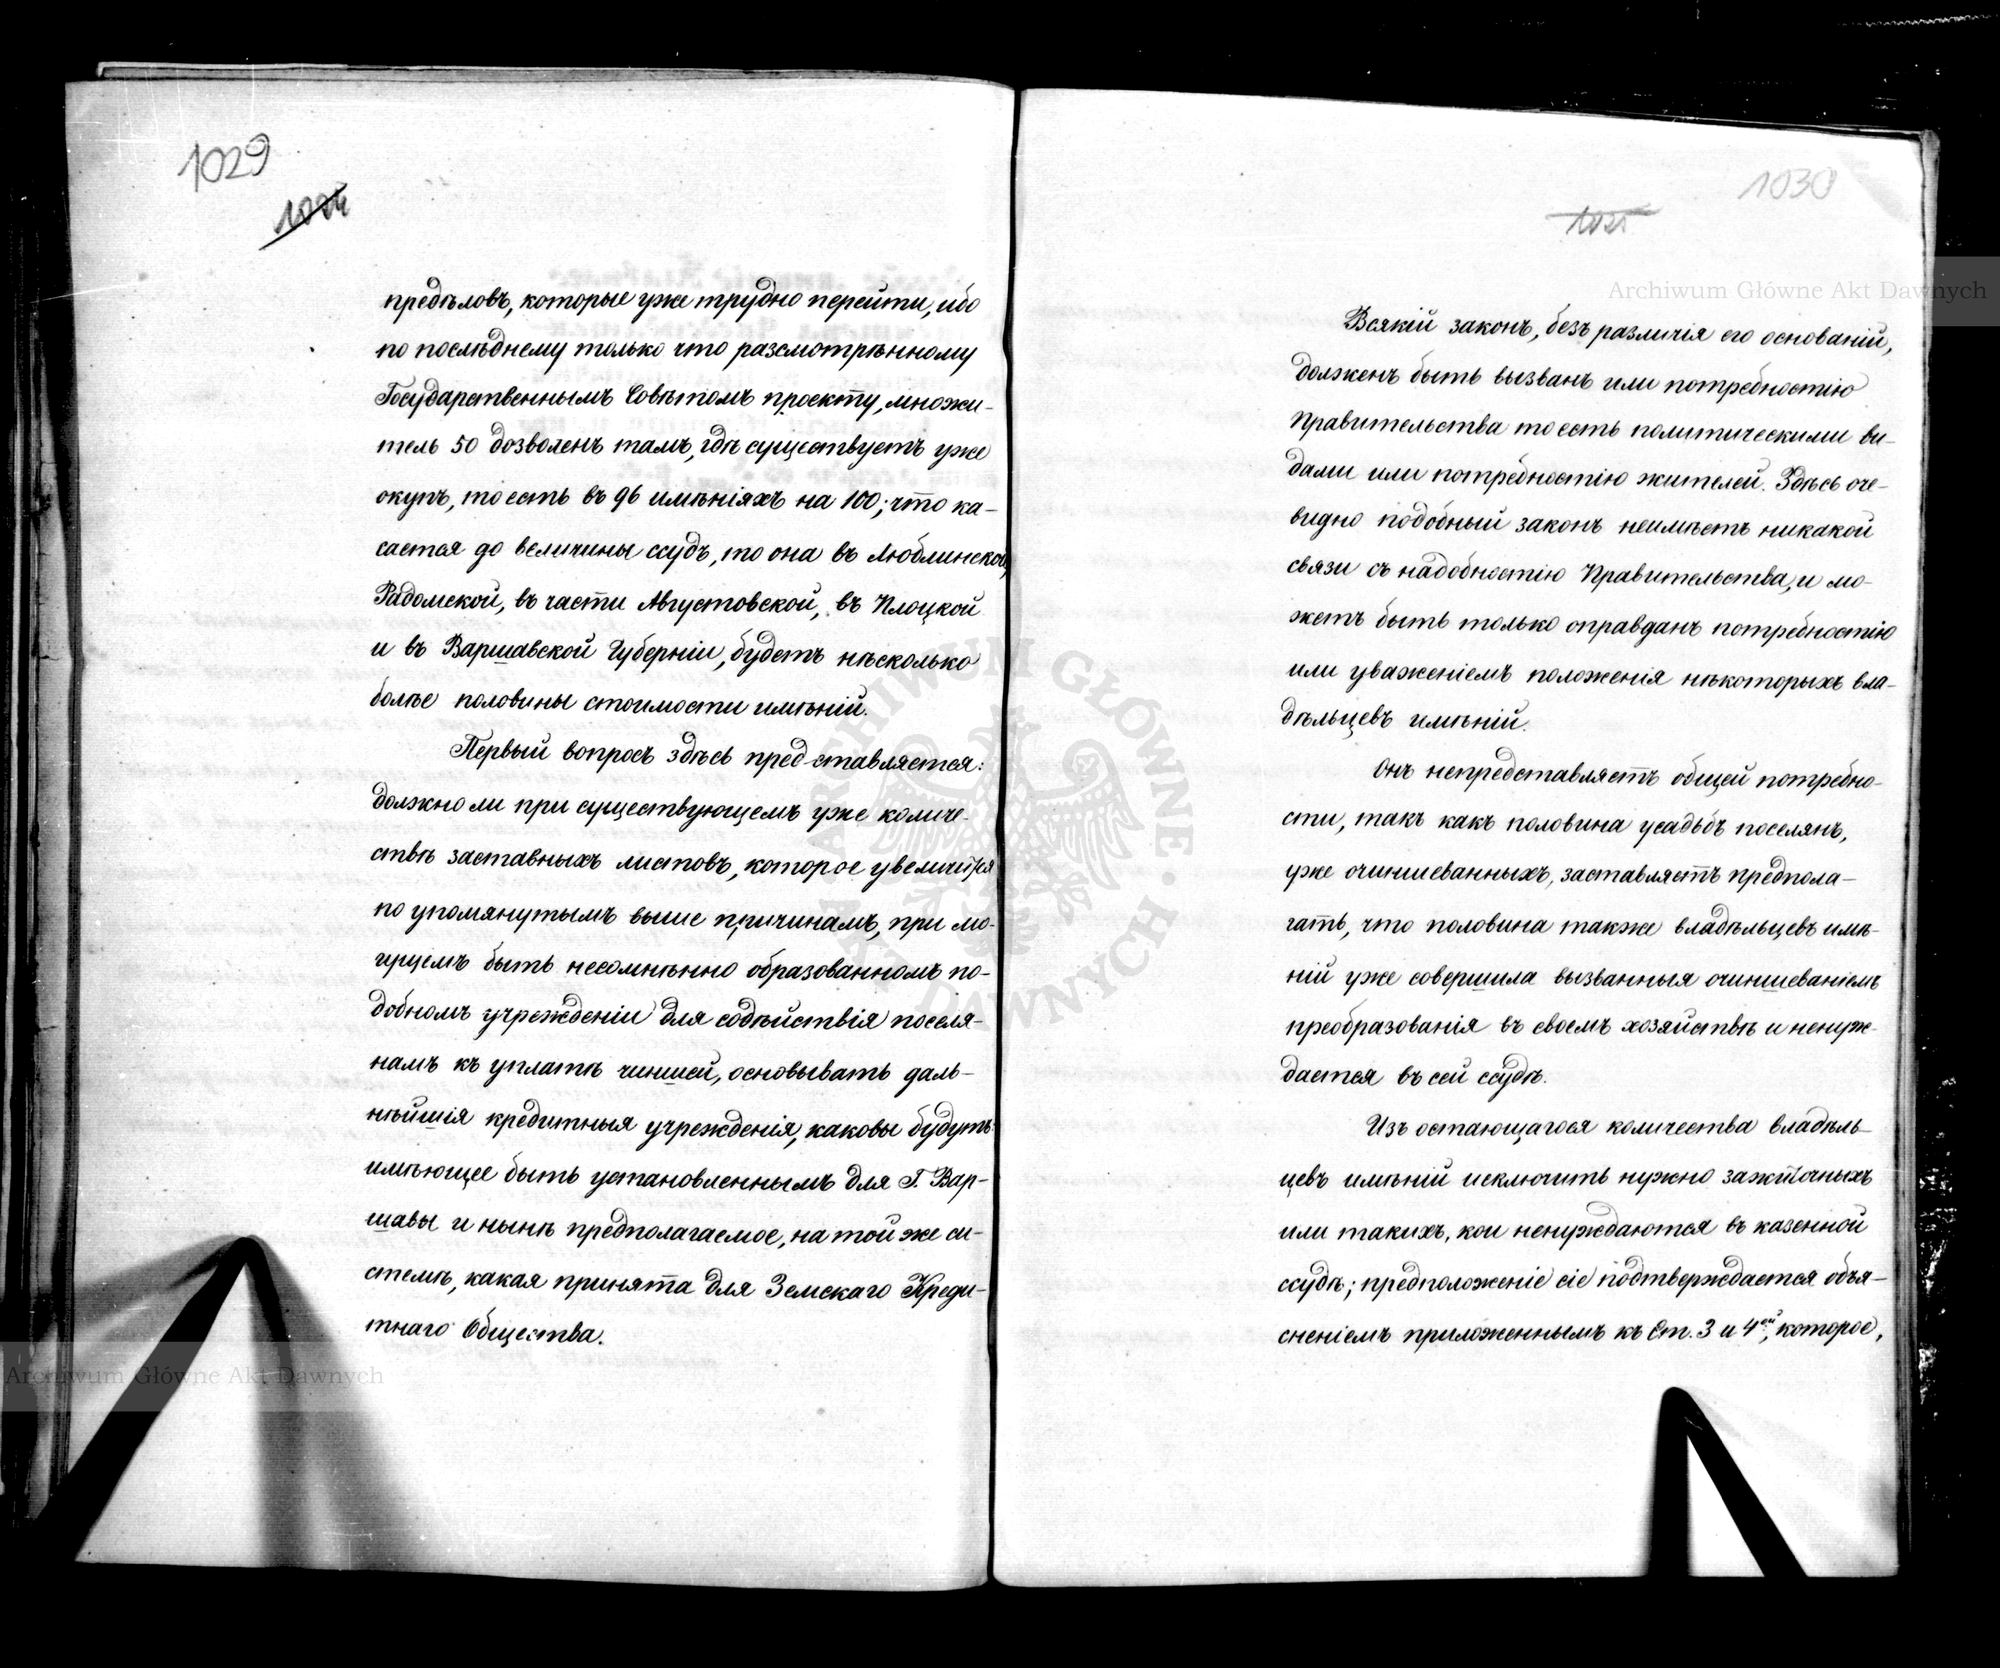 1029
1024
предѣловъ, которые уже трудно перейти, ибо
по послѣднему только что разсмотрѣнному
Государственнымъ Совѣтомъ проекту, множи-
тель 50 дозволенъ тамъ, гдѣ существуетъ уже
окупъ, то есть въ 96 имѣніяхъ на 100; что ка-
сается до величины ссудъ, то она въ Люблинской,
Радомской, въ части Августовской, въ Плоцкой
и въ Варшавской Губерніи, будетъ нѣсколько
болѣе половины стоимости имѣній.
Первый вопросъ здѣсь представляется:
должно ли при существующемъ уже количе-
ствѣ заставныхъ листовъ, которое увеличится
по упомянутымъ выше причинамъ, при мо-
гущемъ быть несомнѣнно образованномъ по-
добномъ учрежденіи для содѣйствія поселя-
намъ къ уплатѣ чиншей, основывать даль-
нѣйшія кредитныя учрежденія, каковы будутъ
имѣющее быть установленнымъ для Г. Вар-
шавы и нынѣ предполагаемое, на той же си-
стемѣ, какая принята для Земскаго Креди-
тнаго Общества.
1030
1025
Всякій законъ, безъ различія его основаній,
долженъ быть вызванъ или потребностію
Правительства то есть политическими ви-
дами или потребностію жителей. Здѣсь оче-
видно подобный законъ неимѣетъ никакой
связи съ надобностію Правительства, и мо-
жетъ быть только оправданъ потребностію
или уваженіемъ положенія нѣкоторыхъ вла-
дѣльцевъ имѣній.
Онъ непредставляетъ общей потребно-
сти, такъ какъ половина усадьбъ поселянъ,
уже очиншеванныхъ, заставляетъ предпола-
гать, что половина также владѣльцевъ имѣ-
ній уже совершила вызванныя очиншеваніемъ
преобразованія въ своемъ хозяйствѣ и ненуж-
дается въ сей ссудѣ.
Изъ остающагося количества владѣль-
цевъ имѣній исключить нужно зажиточныхъ
или такихъ, кои ненуждаются въ казенной
ссудѣ; предположеніе сіе подтверждается объя-
сненіемъ приложеннымъ къ Ст. 3 и 4ой, которое,
Archiwum Główne Akt Dawnych
Archiwum Główne Akt Dawnych
ARCHIWUM GŁÓWNE AKT DAWNYCH